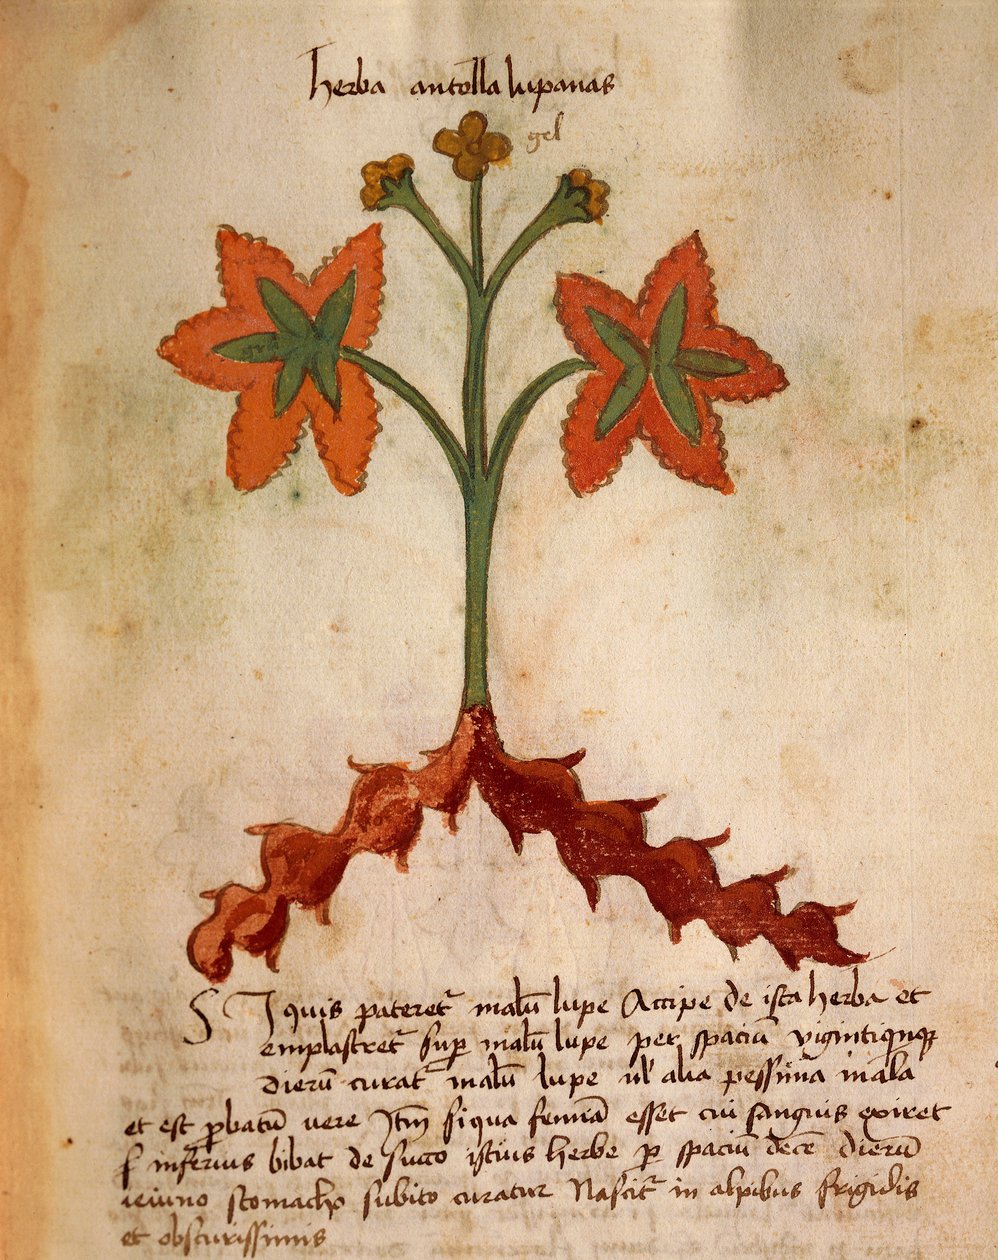 herba antolla lupanas
gel
SI quis pateretr malū lupe Accipe de ista herba et
emplastretr sup malū lupe per spaciū vigintiqnqȝ
dierū curatr malū lupe ul' alia pessima mala
et est pbatū vere Itm siqua femīa esset cui sanguis exiret
inferius bibat de succo istius herbe p spaciū decē dierū
ieiuno stomacho subito curatur Nascitr in alpibus frigidis
et obscurissimis